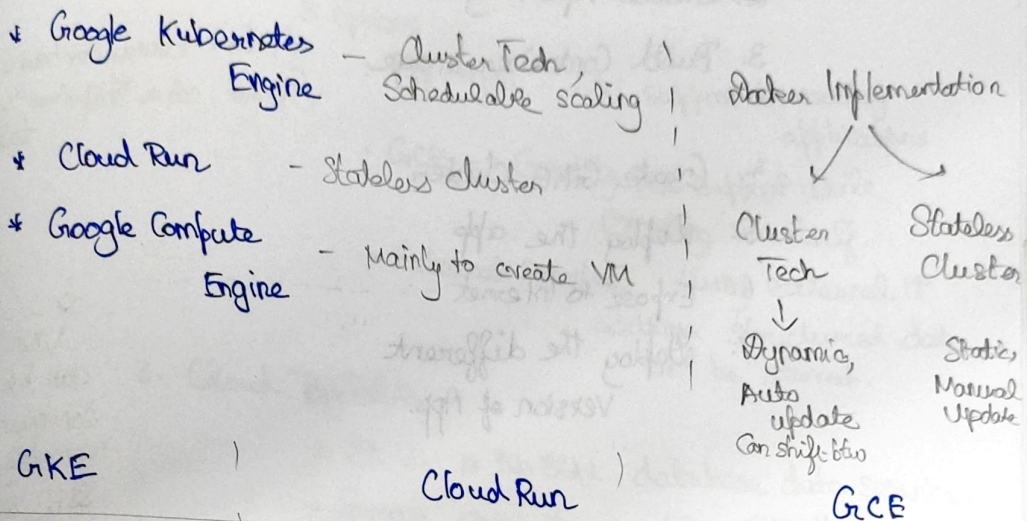 * Google Kubernetes
Engine
- Cluster Tech,
Schedulable scaling
* Cloud Run
- Stateless cluster
* Google Compute
Engine
- Mainly to create VM
Docker Implementation
Cluster
Tech
Stateless
Cluster
Dynamic,
Auto
update
Can shift btw
Static,
Manual
Update
GKE
Cloud Run
GCE